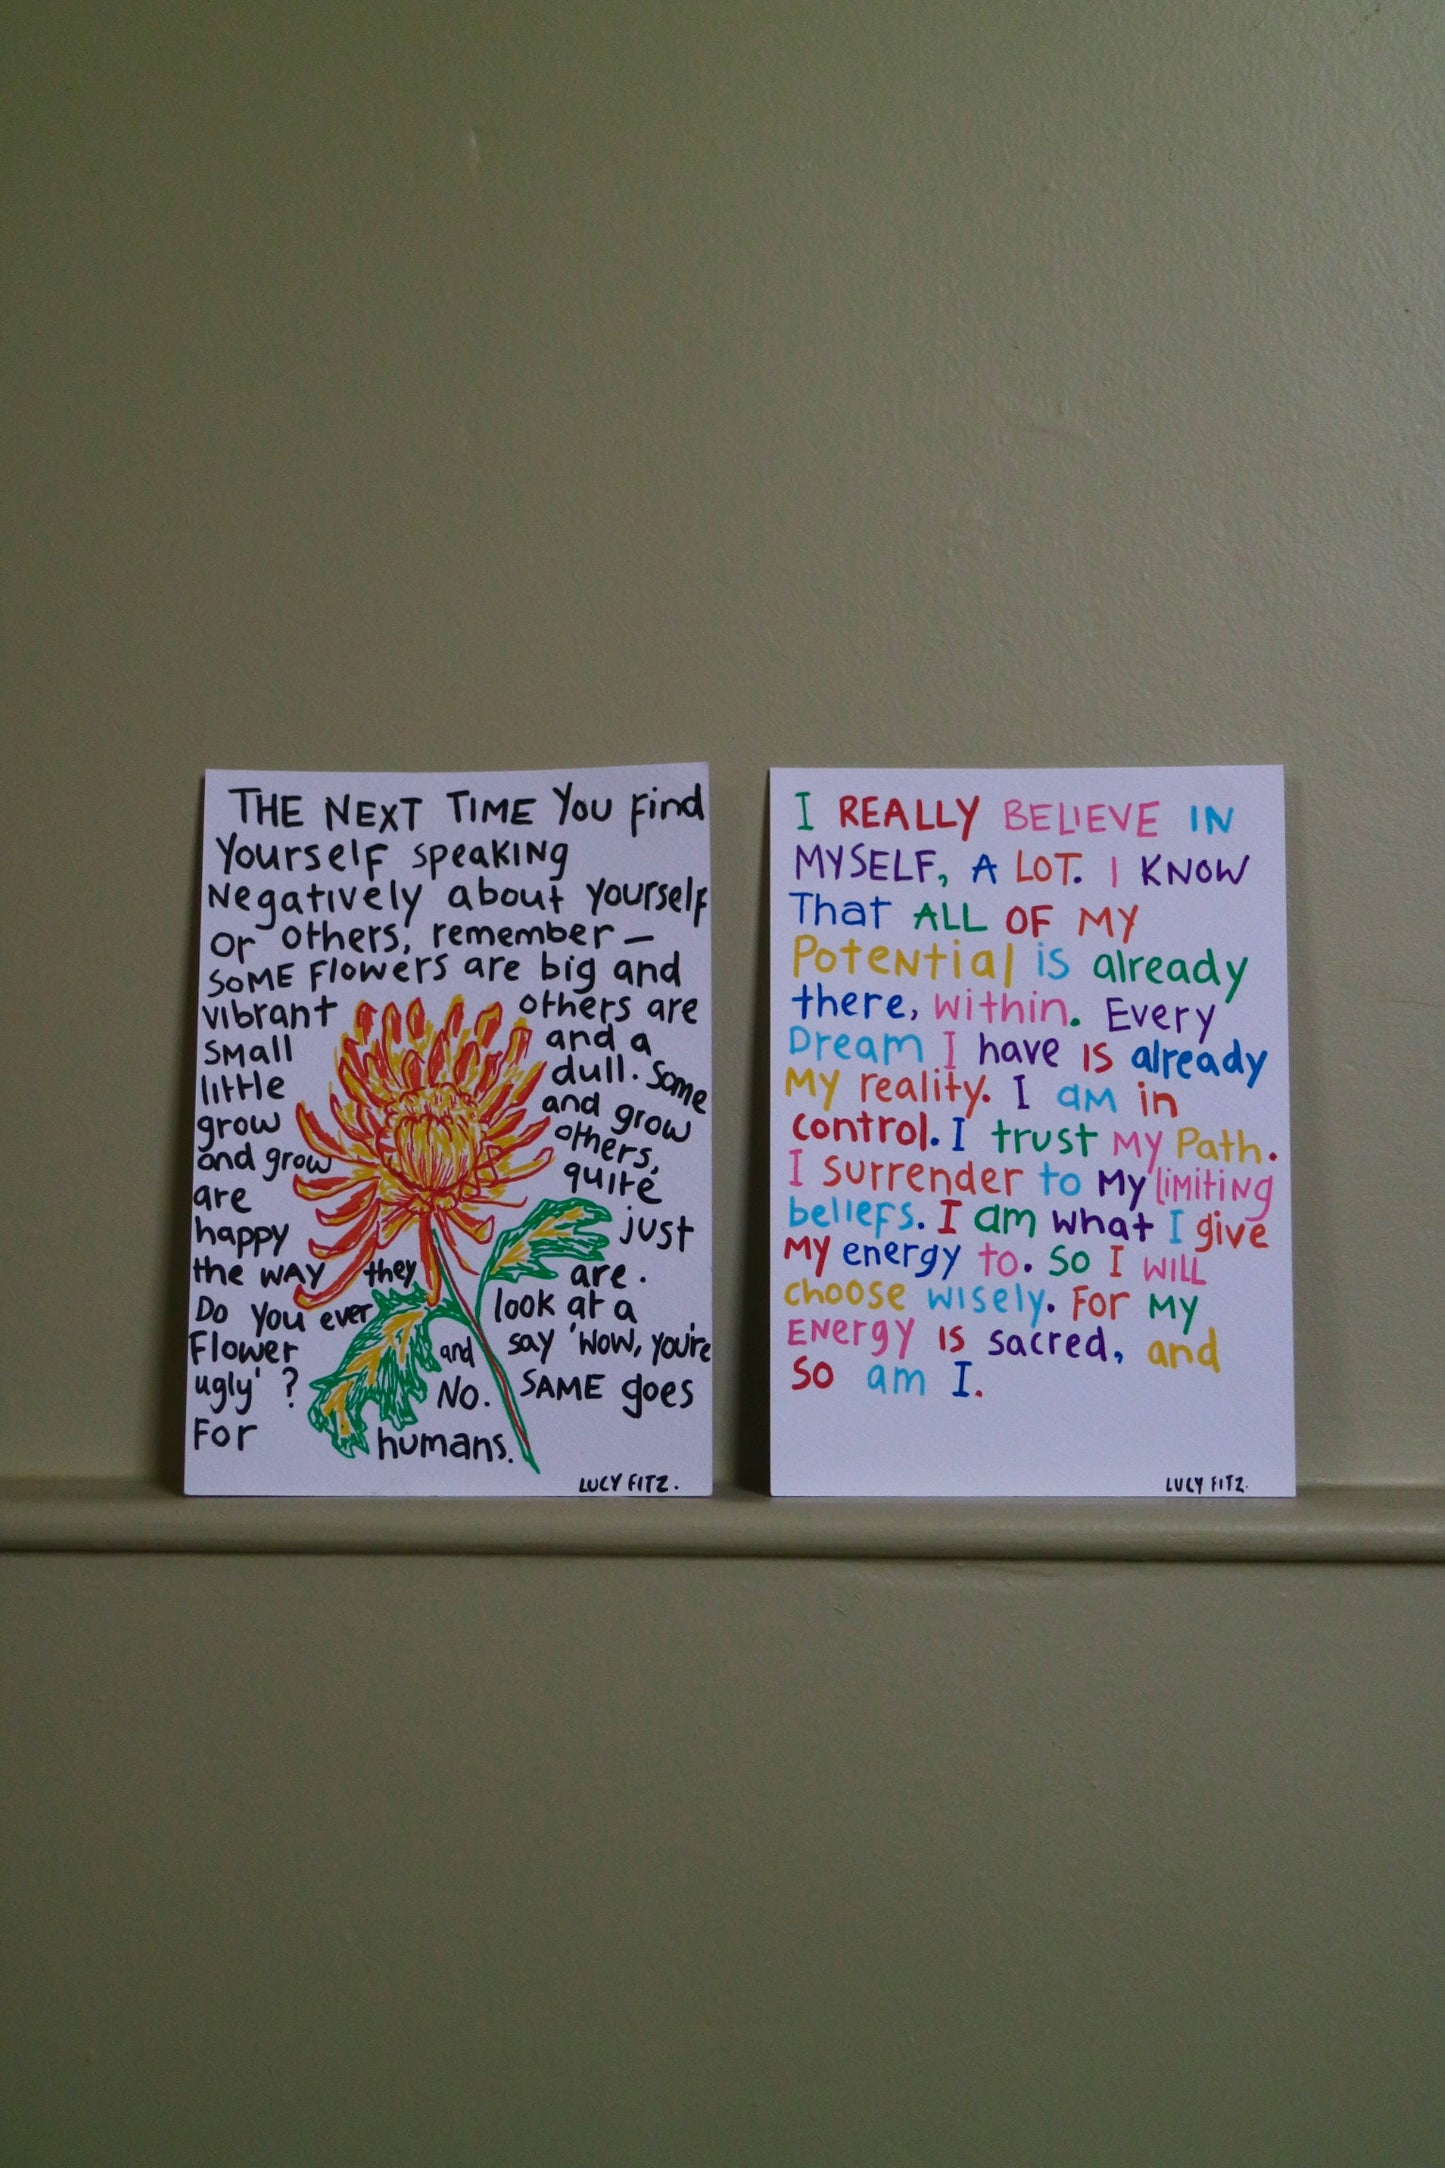 THE NEXT TIME You Find
Yourself speaking
Negatively about yourself
or others, remember —
SOME Flowers are big and
vibrant others are
small and a
little dull. Some
grow and grow
and grow others,
are quite
happy just
the way they are.
Do you ever look at a
Flower and say 'Wow, you're
ugly' ? No. SAME goes
For humans.
LUCY FITZ.
I REALLY BELIEVE IN
MYSELF, A LOT. I KNOW
That ALL OF MY
Potential is already
there, within. Every
Dream I have is already
My reality. I am in
control. I trust my Path.
I surrender to my limiting
beliefs. I am what I give
my energy to. So I will
choose wisely. For my
Energy is sacred, and
so am I.
LUCY FITZ.